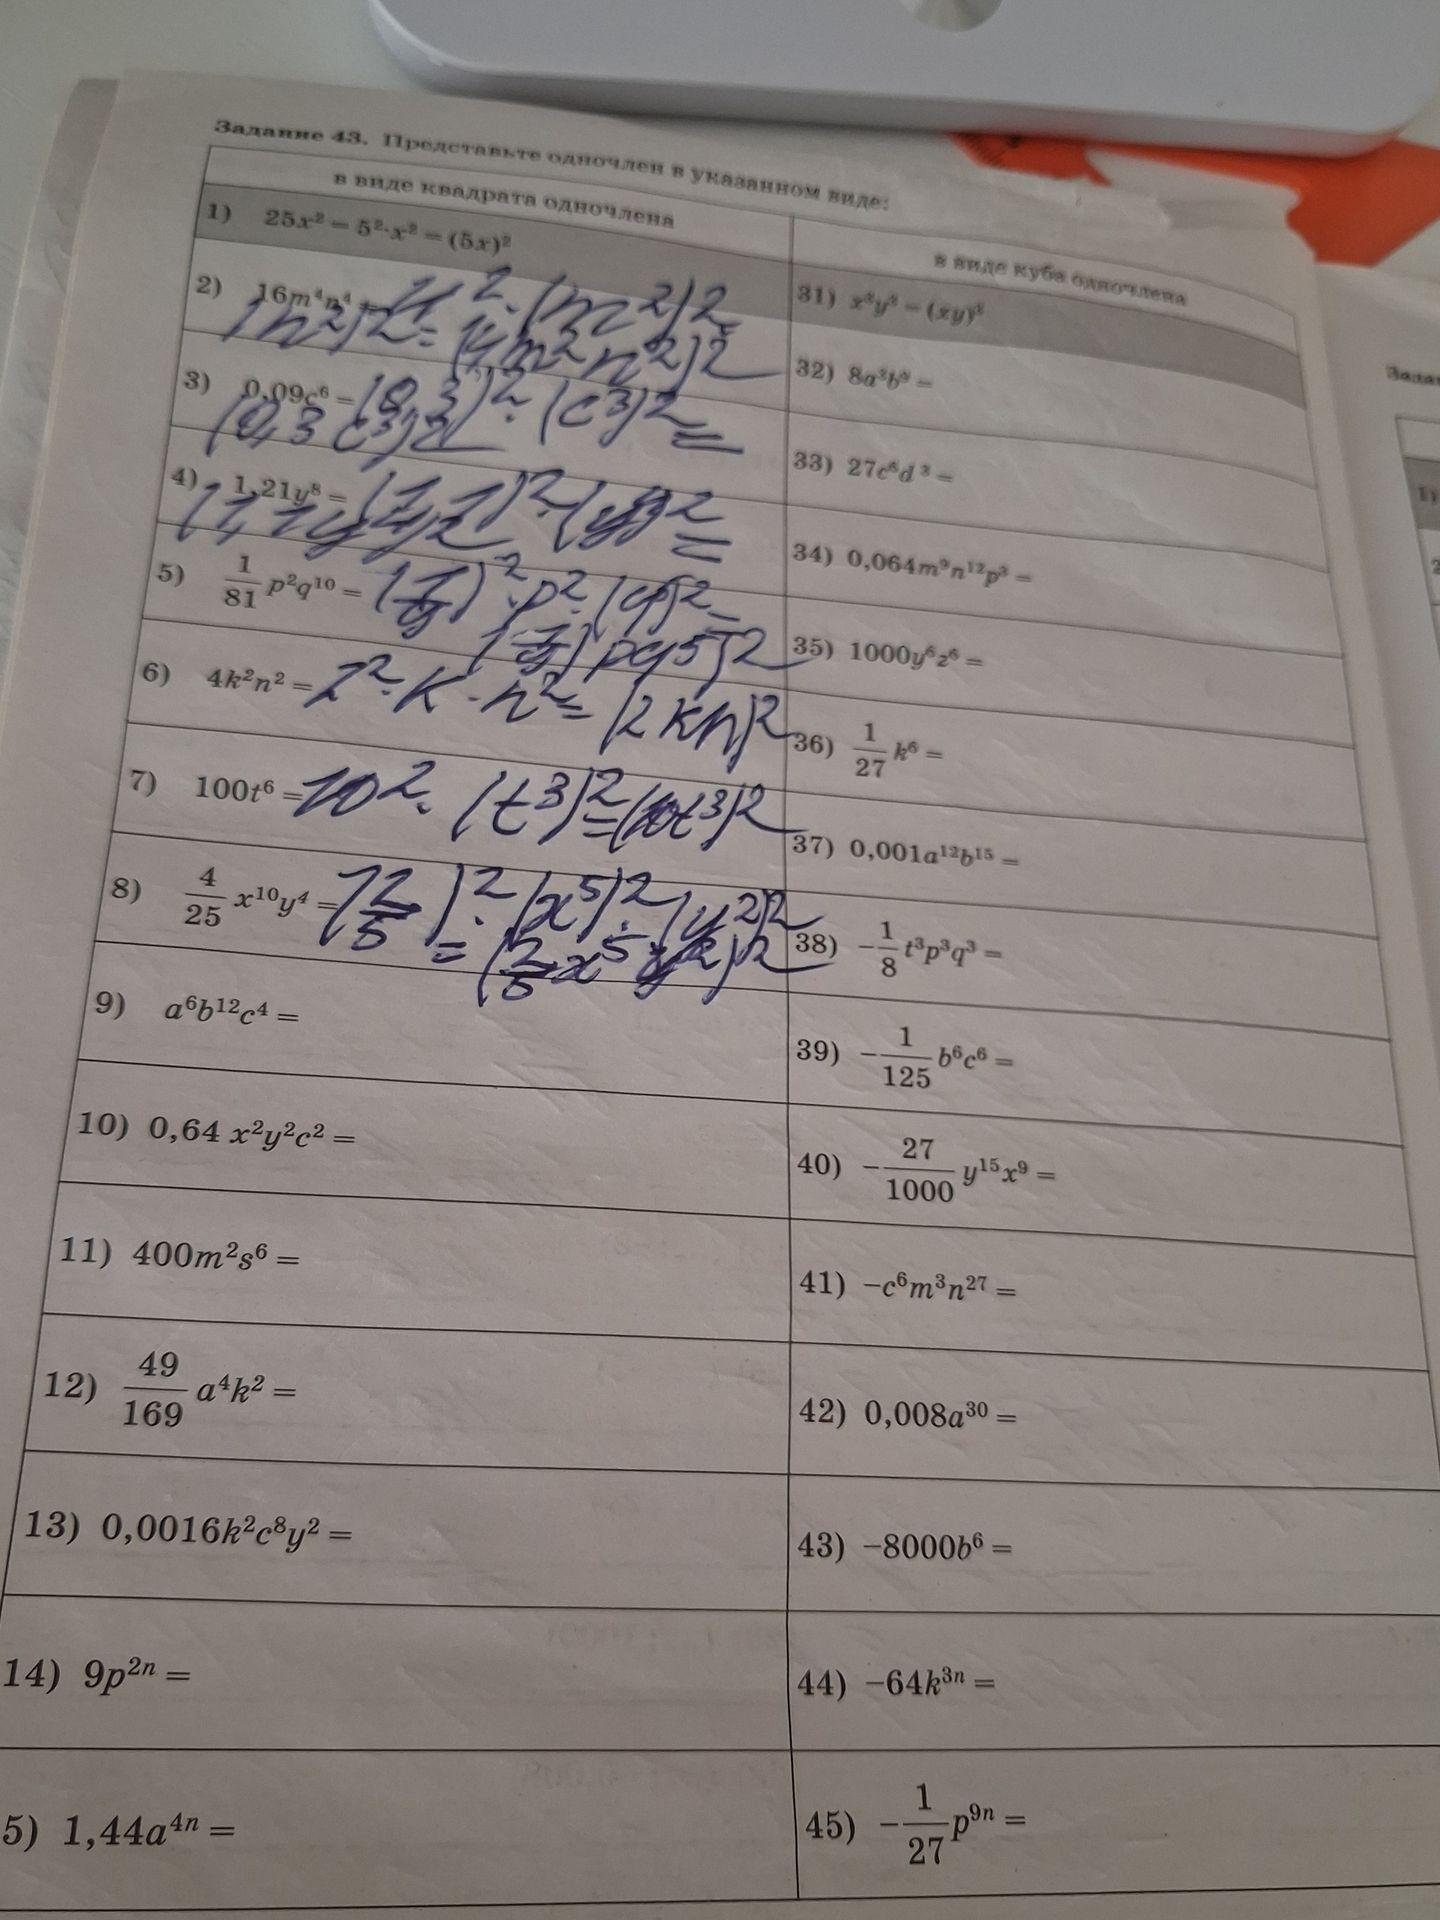 Задание 43. Представьте одночлен в указанном виде:
в виде квадрата одночлена
в виде куба одночлена
1) 25x² = 5²·x² = (5x)²
31) x³y³ = (xy)³
2) 16m⁴n⁴ = 4²·(m²)²·
(n²)² = (4m²n²)²
32) 8a³b⁹ =
3) 0,09c⁶ = (0,3)²·(c³)² =
(0,3c³)²
33) 27c⁶d³ =
4) 1,21y⁸ = (1,1)²·(y⁴)² =
34) 0,064m⁹n¹²p³ =
5) 1/81 p²q¹⁰ = (1/9)²·p²·(q⁵)² =
(1/9) pq5)²
35) 1000y⁶z⁶ =
6) 4k²n² = 2²·k·n² = (2kn)²
36) 1/27 k⁶ =
7) 100t⁶ = 10²·(t³)² = (10t³)²
37) 0,001a¹²b¹⁵ =
8) 4/25 x¹⁰y⁴ = (2/5)²·(x⁵)²·(y²)²
= (2/5 x⁵y²)²
38) −1/8 t³p³q³ =
9) a⁶b¹²c⁴ =
39) −1/125 b⁶c⁶ =
10) 0,64 x²y²c² =
40) −27/1000 y¹⁵x⁹ =
11) 400m²s⁶ =
41) −c⁶m³n²⁷ =
12) 49/169 a⁴k² =
42) 0,008a³⁰ =
13) 0,0016k²c⁸y² =
43) −8000b⁶ =
14) 9p²ⁿ =
44) −64k³ⁿ =
5) 1,44a⁴ⁿ =
45) −1/27 p⁹ⁿ =
1)
2